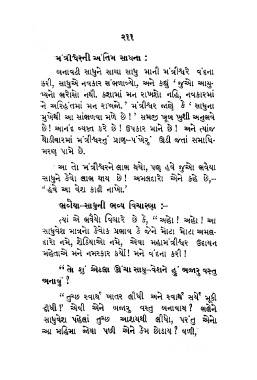 ૨૧૧
મંત્રીશ્વરની અંતિમ સાધના :
બનાવટી સાધુને સાચા સાધુ માની મંત્રીશ્વરે વંદના
કરી, સાધુએ નવકાર સંભળાવ્યો, અને કહ્યું ' જુઓ આયુ-
ષ્યનો ભરોસો નથી. કશામાં મન રાખશો નહિ, નવકારમાં
ને અરિહંતમાં મન રાખજો.' મંત્રીશ્વર જાણે કે ' સાધુના
મુખેથી આ સાંભળવા મળે છે !' સમજી ખૂબ ખુશી અનુભવે
છે ! આનંદ વ્યક્ત કરે છે ! ઉપકાર માને છે ! અને ત્યાંજ
થોડીવારમાં મંત્રીશ્વરનું પ્રાણ-પંખેરું ઉડી જતાં સમાધિ-
મરણ પામે છે.
આ તો મંત્રીશ્વરને લાભ થયો, પણ હવે જુઓ ભવૈયા
સાધુને કેવો લાભ થાય છે ! અમલદારો એને કહે છે,–
"હવે આ વેશ કાઢી નાખો.'
ભવૈયા-સાધુની ભવ્ય વિચારણા :–
ત્યાં એ ભવૈયો વિચારે છે કે, " અહો ! અહો ! આ
સાધુવેશ માત્રનો કેવોક પ્રભાવ કે જેને મોટા મોટા અમલ-
દારો નમે, શેઠીયાઓ નમે, એવા મહામંત્રીશ્વર ઉદાયન
મહેતાએ મને નમસ્કાર કર્યો ! મને વંદના કરી !
" તો શું એટલા ઊંચા સાધુ-વેશને હું બજારુ વસ્તુ
બનાવું ?
" તુચ્છ સ્વાર્થ ખાતર લીધી અને સ્વાર્થ સર્યે મૂકી
દીધી !' એવી એને બજારુ વસ્તુ બનાવાય ? ભલેને
સાધુવેશ પહેલાં તુચ્છ આશયથી લીધો, પરંતુ એનો
આ મહિમા જોયા પછી એને કેમ છોડાય ? વળી,